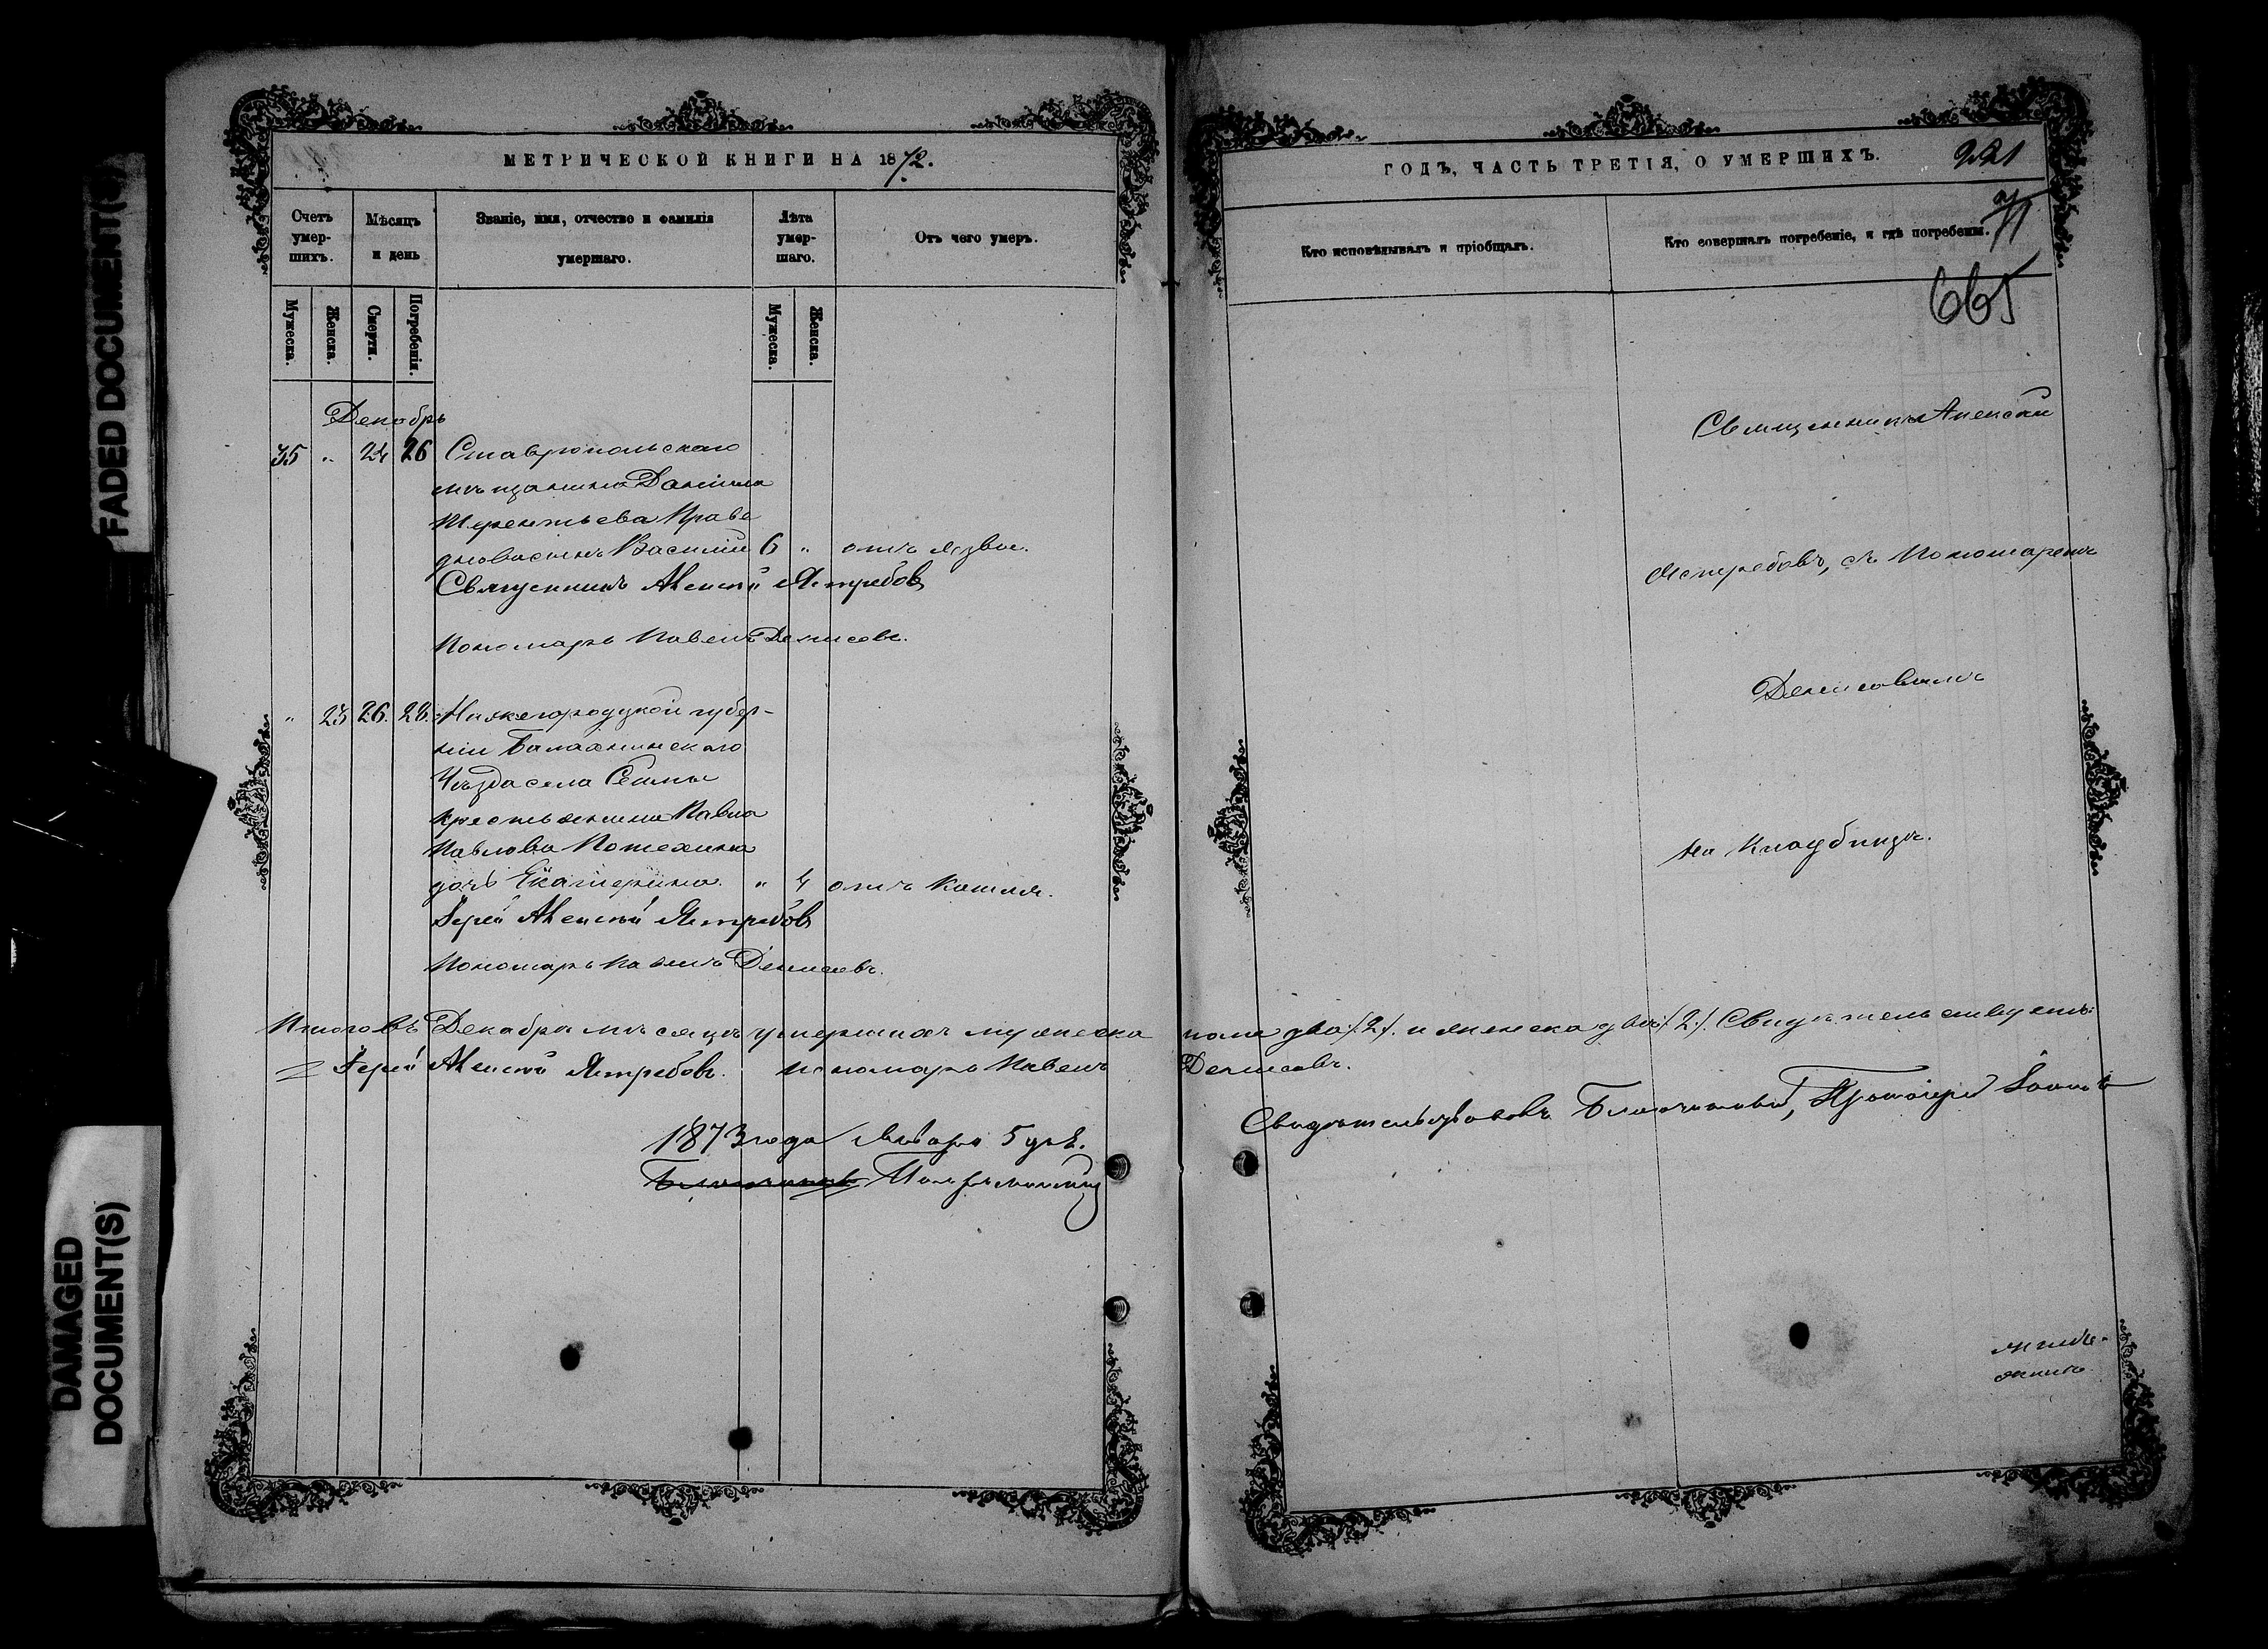 FADED DOCUMENT(S)
DAMAGED
DOCUMENT(S)
МЕТРИЧЕСКОЙ КНИГИ НА 1872.
Счетъ умер-шихъ.
Мѣсяцъ и день
Званіе, имя, отчество и фамилія умершаго.
Лѣта умер-шаго.
Отъ чего умеръ.
Мужеска.
Женска.
Смерти.
Погребенія.
Мужеска.
Женска.
Декабрь
35 „ 24 26 Ставропольскаго
мѣщанина Даніила
Терентьева Праве
днова сынъ Василій 6 „ отъ язвы.
Священникъ Алексій Ястребовъ
Пономарь Павелъ Денисовъ.
„ 28 26. 28. Нижегородцкой губер-
ніи Балахнинскаго
Уѣзда села
крестьянина Павла
Павлова Потехина
дочь Екатерина. „ 4 отъ Кашля.
Іерей Алексій Ястребовъ
Пономарь Павелъ Денисовъ.
Итого въ Декабрѣ мѣсяцѣ умершихъ мужеска
Іерей Алексій Ястребовъ. пономарь Павелъ
1873 года Января 5 дня.
ГОДЪ, ЧАСТЬ ТРЕТІЯ, О УМЕРШИХЪ. 221
Кто исповѣдывалъ и пріобщалъ.
Кто совершалъ погребеніе, и гдѣ погребены.
665
Священникъ Алексій
Ястребовъ, съ Пономаремъ
Денисовымъ
на Кладбищѣ.
пола два /2/. и женска двѣ /2/. Свидѣтельствуетъ:
Денисовъ.
Свидѣтельствовалъ Благочинный, Протоіерей Іоаннъ